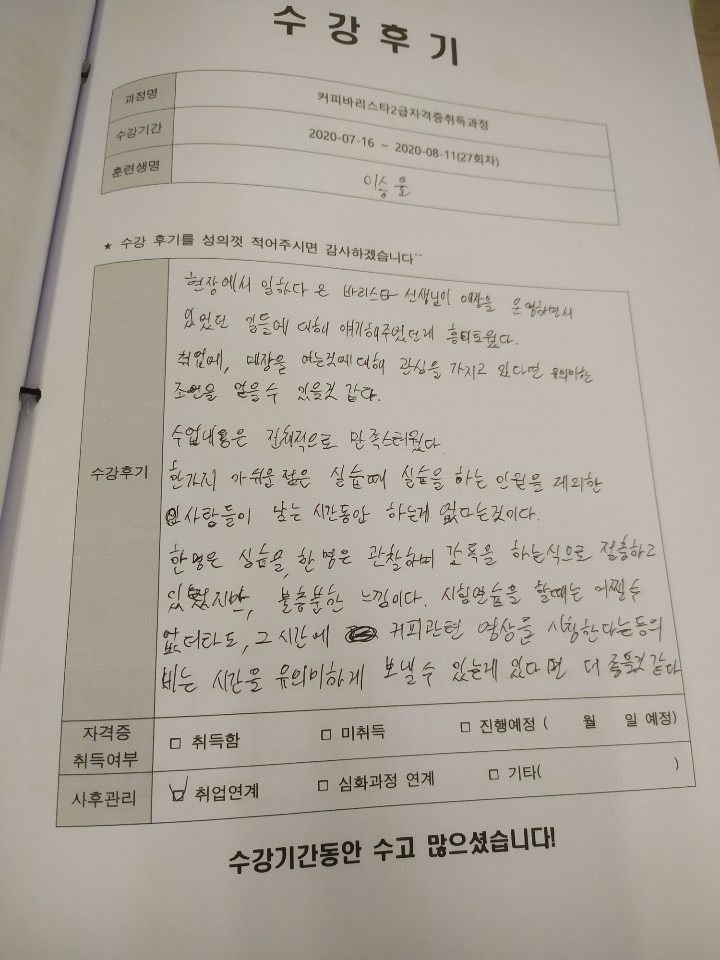 수강후기
과정명 커피바리스타2급자격증취득과정
수강기간 2020-07-16 ~ 2020-08-11(27회차)
훈련생명 이승윤
★ 수강 후기를 성의껏 적어주시면 감사하겠습니다^^
현장에서 일하다 온 바리스타 선생님이 매장을 운영하면서
있었던 일들에 대해 얘기해주었던게 흥미로웠다.
취업에, 매장을 여는것에 대해 관심을 가지고 있다면 유의미한
조언을 얻을수 있을것 같다.
수업내용은 전체적으로 만족스러웠다.
수강후기
한가지 아쉬운 점은 실습때 실습을 하는 인원을 제외한
사람들이 남는 시간동안 하는게 없다는것이다.
한명은 실습을, 한명은 관찰하며 감독을 하는식으로 절충하고
있었지만, 불충분한 느낌이다. 시험연습을 할때는 어쩔수
없더라도, 그 시간에 커피관련 영상을 시청한다는등의
비는 시간을 유의미하게 보낼수 있는게 있다면 더 좋을것 같다
자격증 취득여부 □ 취득함 □ 미취득 □ 진행예정 ( 월 일 예정)
사후관리 ☑ 취업연계 □ 심화과정 연계 □ 기타( )
수강기간동안 수고 많으셨습니다!